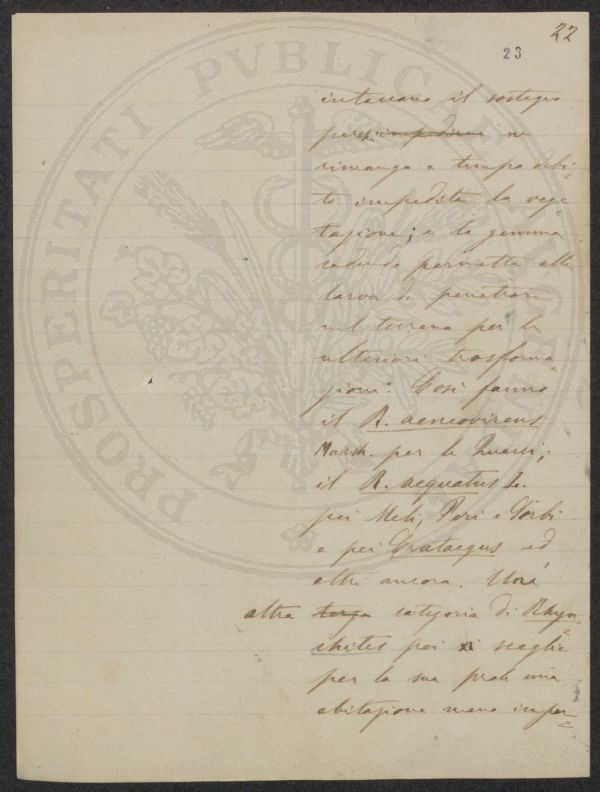 22
23
intaccano il sostegno
perchè impedire ne
rimanga a tempo debi=
to impedita la vege=
tazione; e la gemma
cadendo permette alla
larva di penetrare
nel terreno per le
ulteriori trasforma=
zioni. Così fanno
il R. aeneovirens
Marsh. per le Querci;
il R. aequatus L.
pei Meli, Peri e Sorbi
e pei Crataegus ed
altri ancora. Una
altra terza categoria di Rhyn=
chites poi si sceglie
per la sua prole una
abitazione meno imper=
PROSPERITATI PVBLICAE